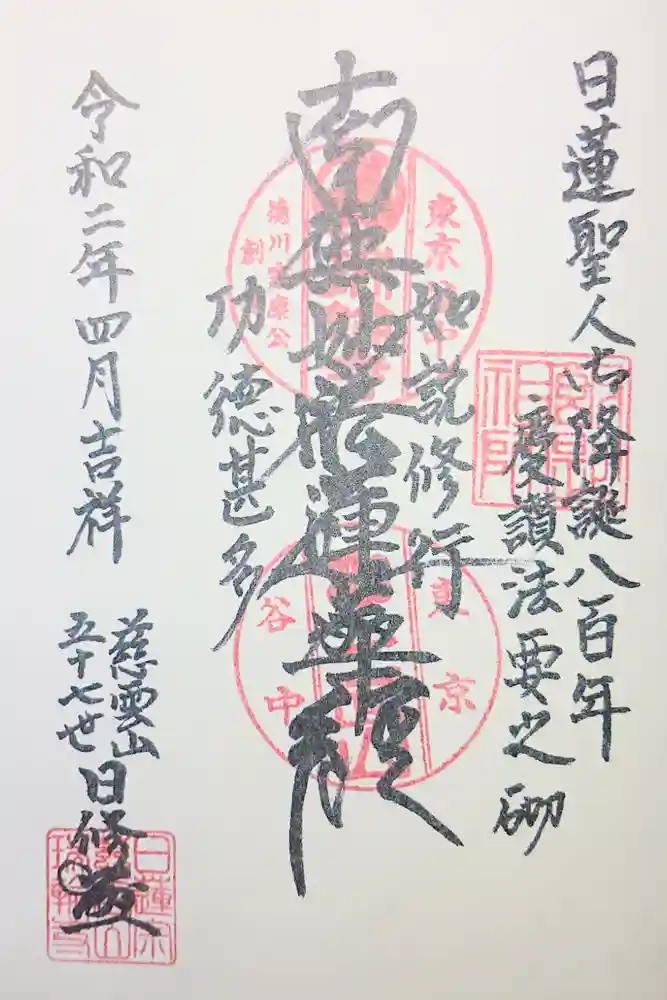 日蓮聖人御降誕八百年
慶讃法要之砌
如説修行
南無妙法蓮華経
功徳甚多
令和二年四月吉祥
慈雲山
五十七世
日修
東京
徳川家康公
創
東京
谷中
日蓮宗